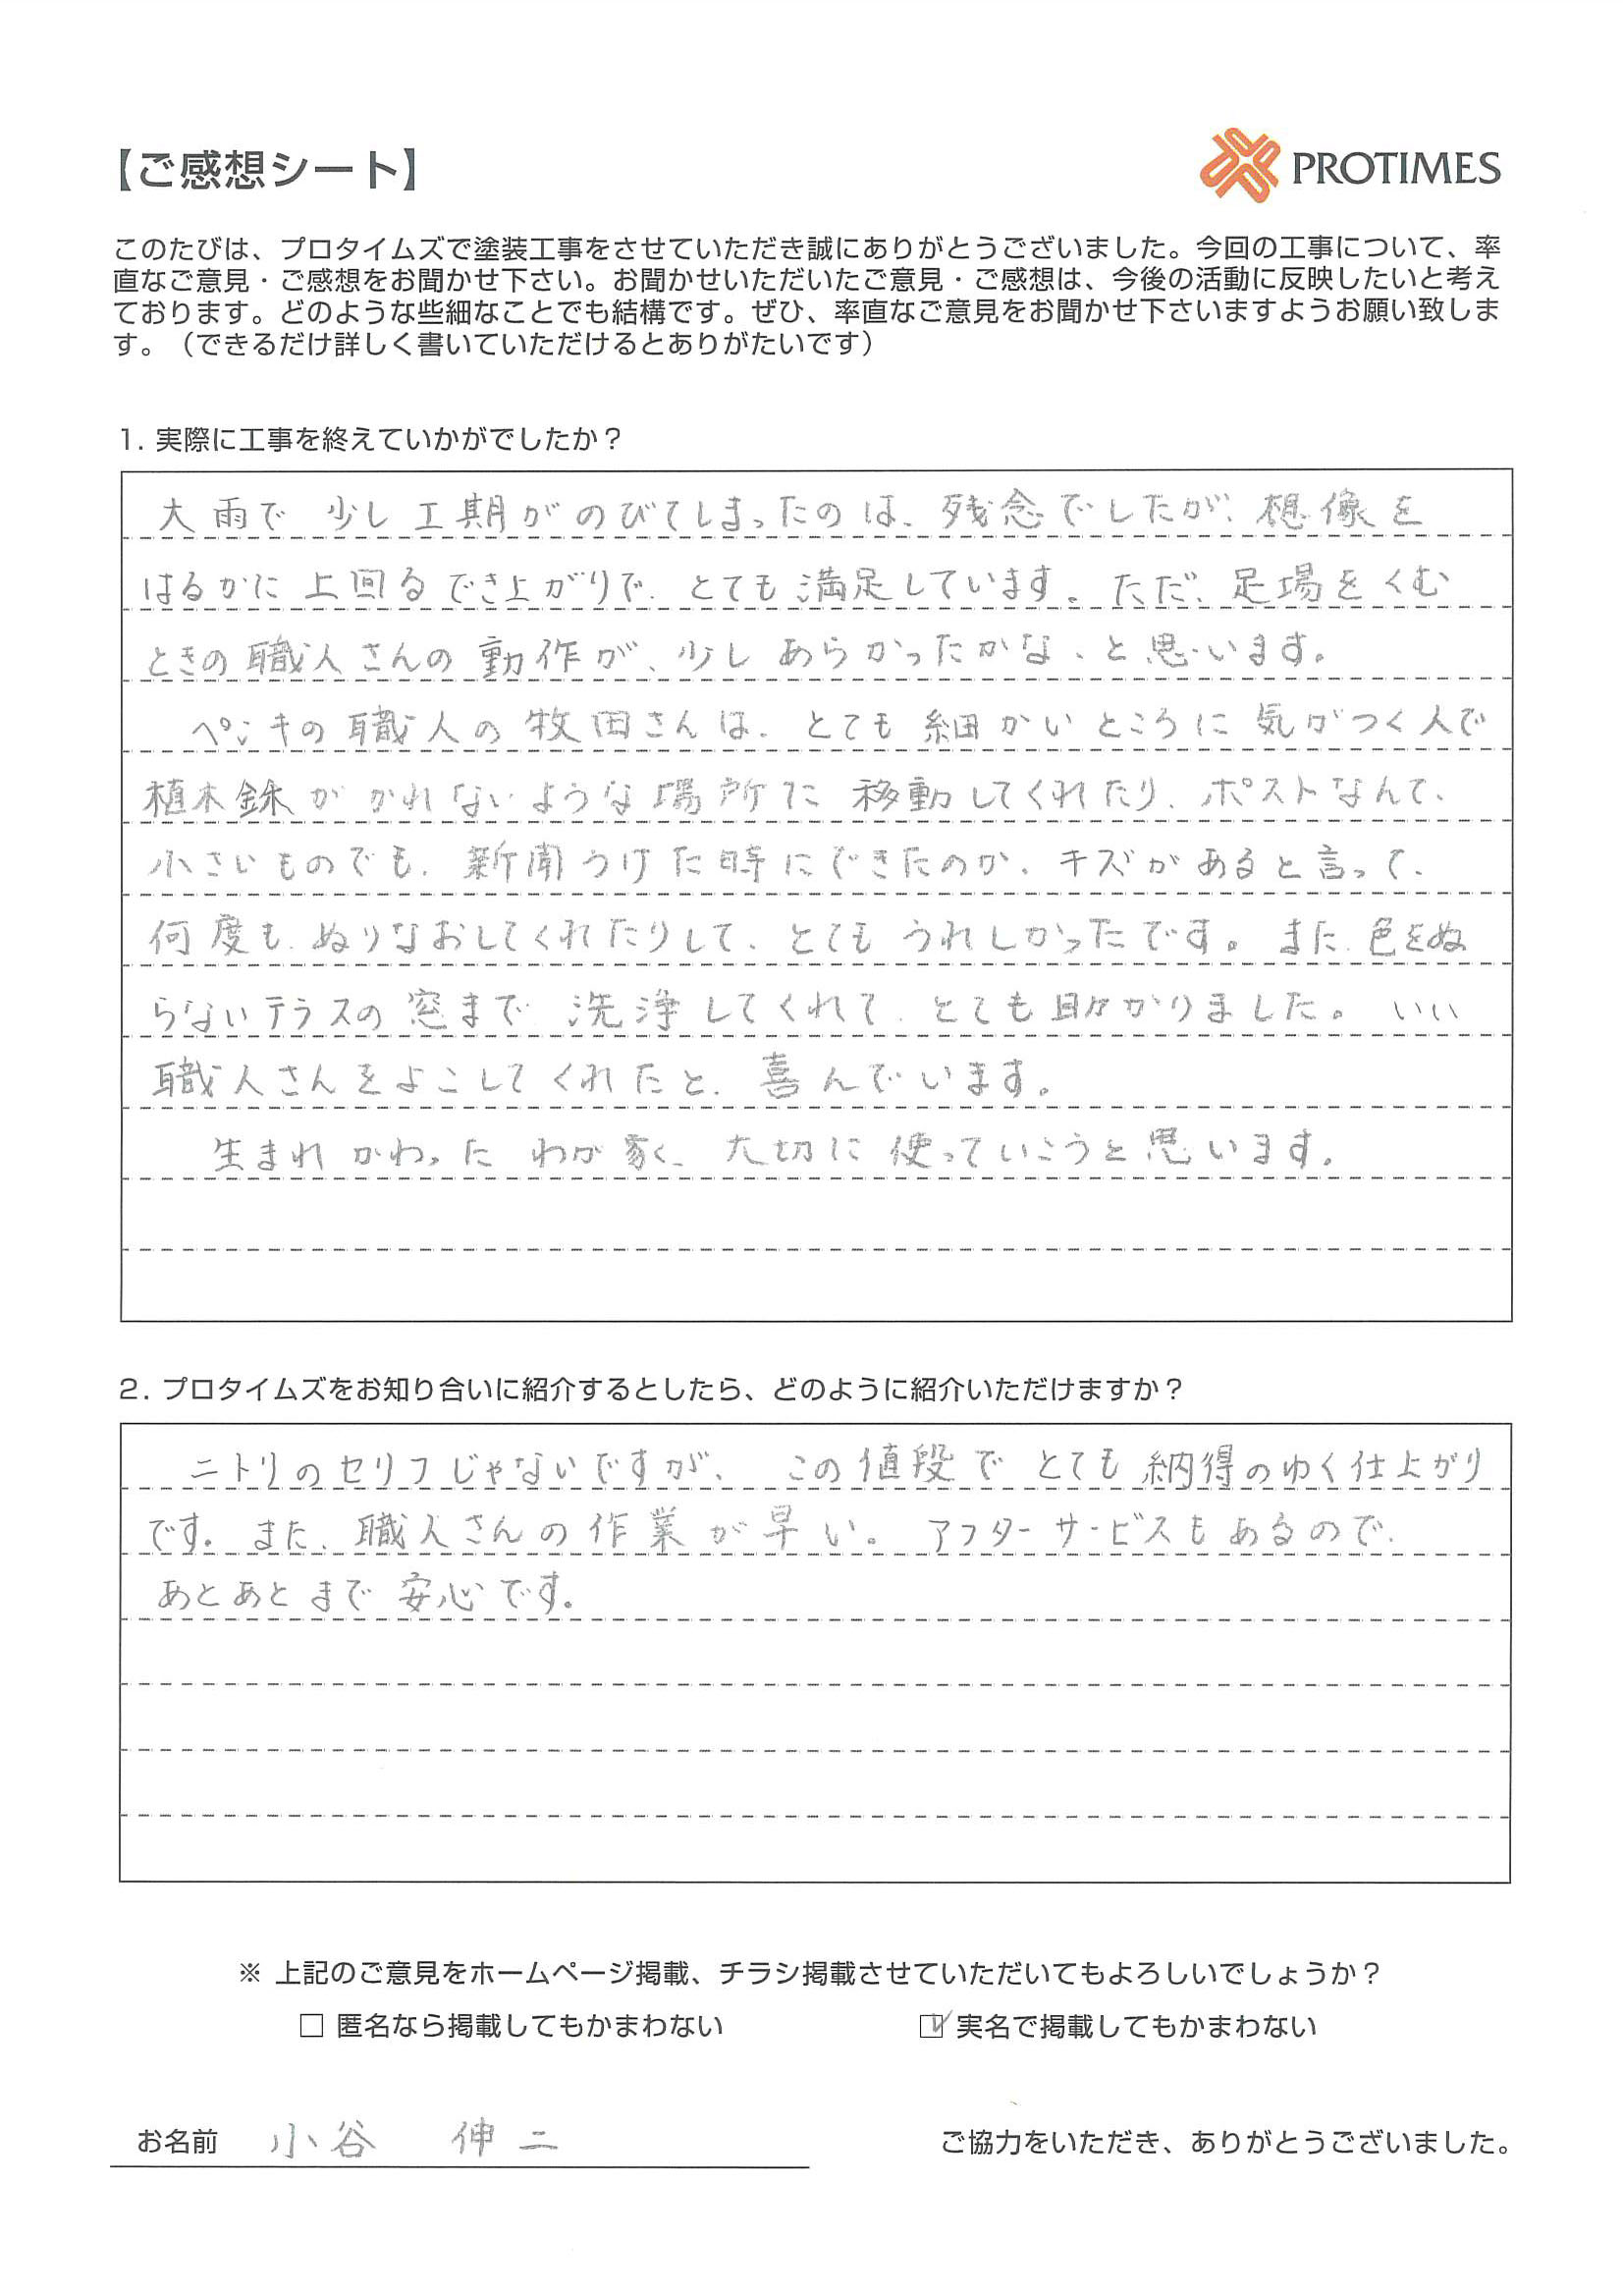 【ご感想シート】
PROTIMES
このたびは、プロタイムズで塗装工事をさせていただき誠にありがとうございました。今回の工事について、率
直なご意見・ご感想をお聞かせ下さい。お聞かせいただいたご意見・ご感想は、今後の活動に反映したいと考え
ております。どのような些細なことでも結構です。ぜひ、率直なご意見をお聞かせ下さいますようお願い致しま
す。（できるだけ詳しく書いていただけるとありがたいです）
1. 実際に工事を終えていかがでしたか？
大雨で 少し工期がのびてしまったのは、残念でしたが、想像を
はるかに上回るでき上がりで、とても満足しています。ただ、足場をくむ
ときの職人さんの動作が、少しあらかったかな、と思います。
ペンキの職人の牧田さんは、とても細かいところに気がつく人で
植木鉢がかれないような場所に移動してくれたり、ポストなんて、
小さいものでも、新聞うけた時にできたのか、キズがあると言って、
何度も、ぬりなおしてくれたりして、とてもうれしかったです。また、色をぬ
らないテラスの窓まで洗浄してくれて、とても助かりました。いい
職人さんをよこしてくれたと、喜んでいます。
生まれかわった わが家、大切に使っていこうと思います。
2. プロタイムズをお知り合いに紹介するとしたら、どのように紹介いただけますか？
ニトリのセリフじゃないですが、この値段でとても納得のゆく仕上がり
です。また、職人さんの作業が早い。アフターサービスもあるので、
あとあとまで安心です。
※ 上記のご意見をホームページ掲載、チラシ掲載させていただいてもよろしいでしょうか？
□ 匿名なら掲載してもかまわない ☑ 実名で掲載してもかまわない
お名前 小谷 伸二 ご協力をいただき、ありがとうございました。